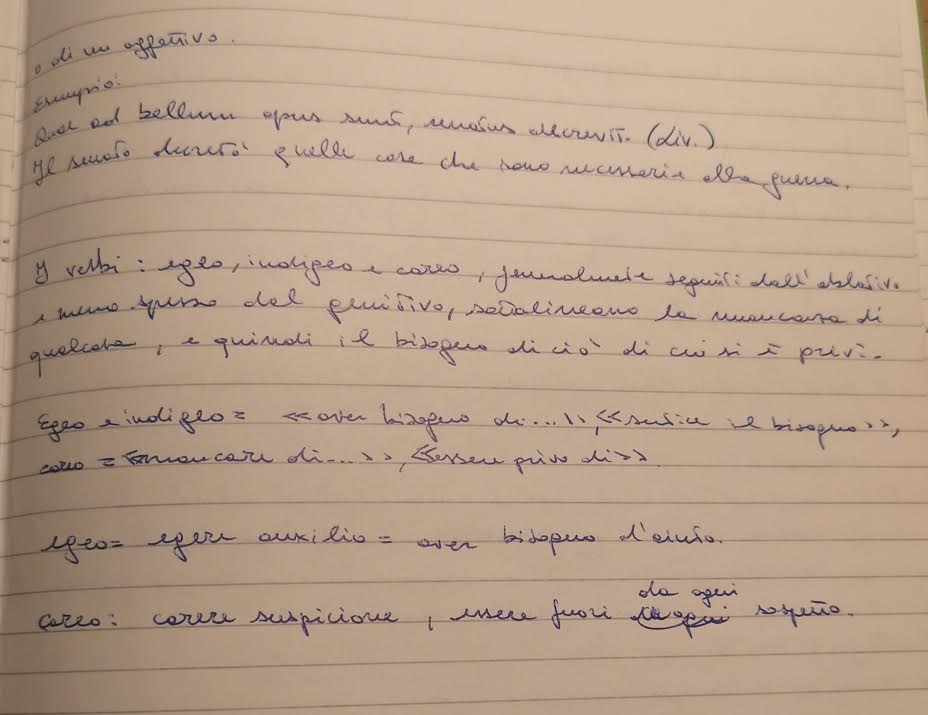 o di un aggettivo.
Esempio:
Quae ad bellum opus sunt, senatus decrevit. (Liv.)
Il senato decretò quelle cose che sono necessarie alla guerra.
I verbi: egeo, indigeo e careo, generalmente seguiti dall'ablativo
e meno spesso dal genitivo, sottolineano la mancanza di
qualcosa, e quindi il bisogno di ciò di cui si è privi.
Egeo e indigeo = <<aver bisogno di...>>, <<sentire il bisogno>>,
careo = <<mancare di...>>, <<essere privo di>>.
egeo = egere auxilio = aver bisogno d'aiuto.
Careo: carere suspicione, essere fuori da ogni sospetto.